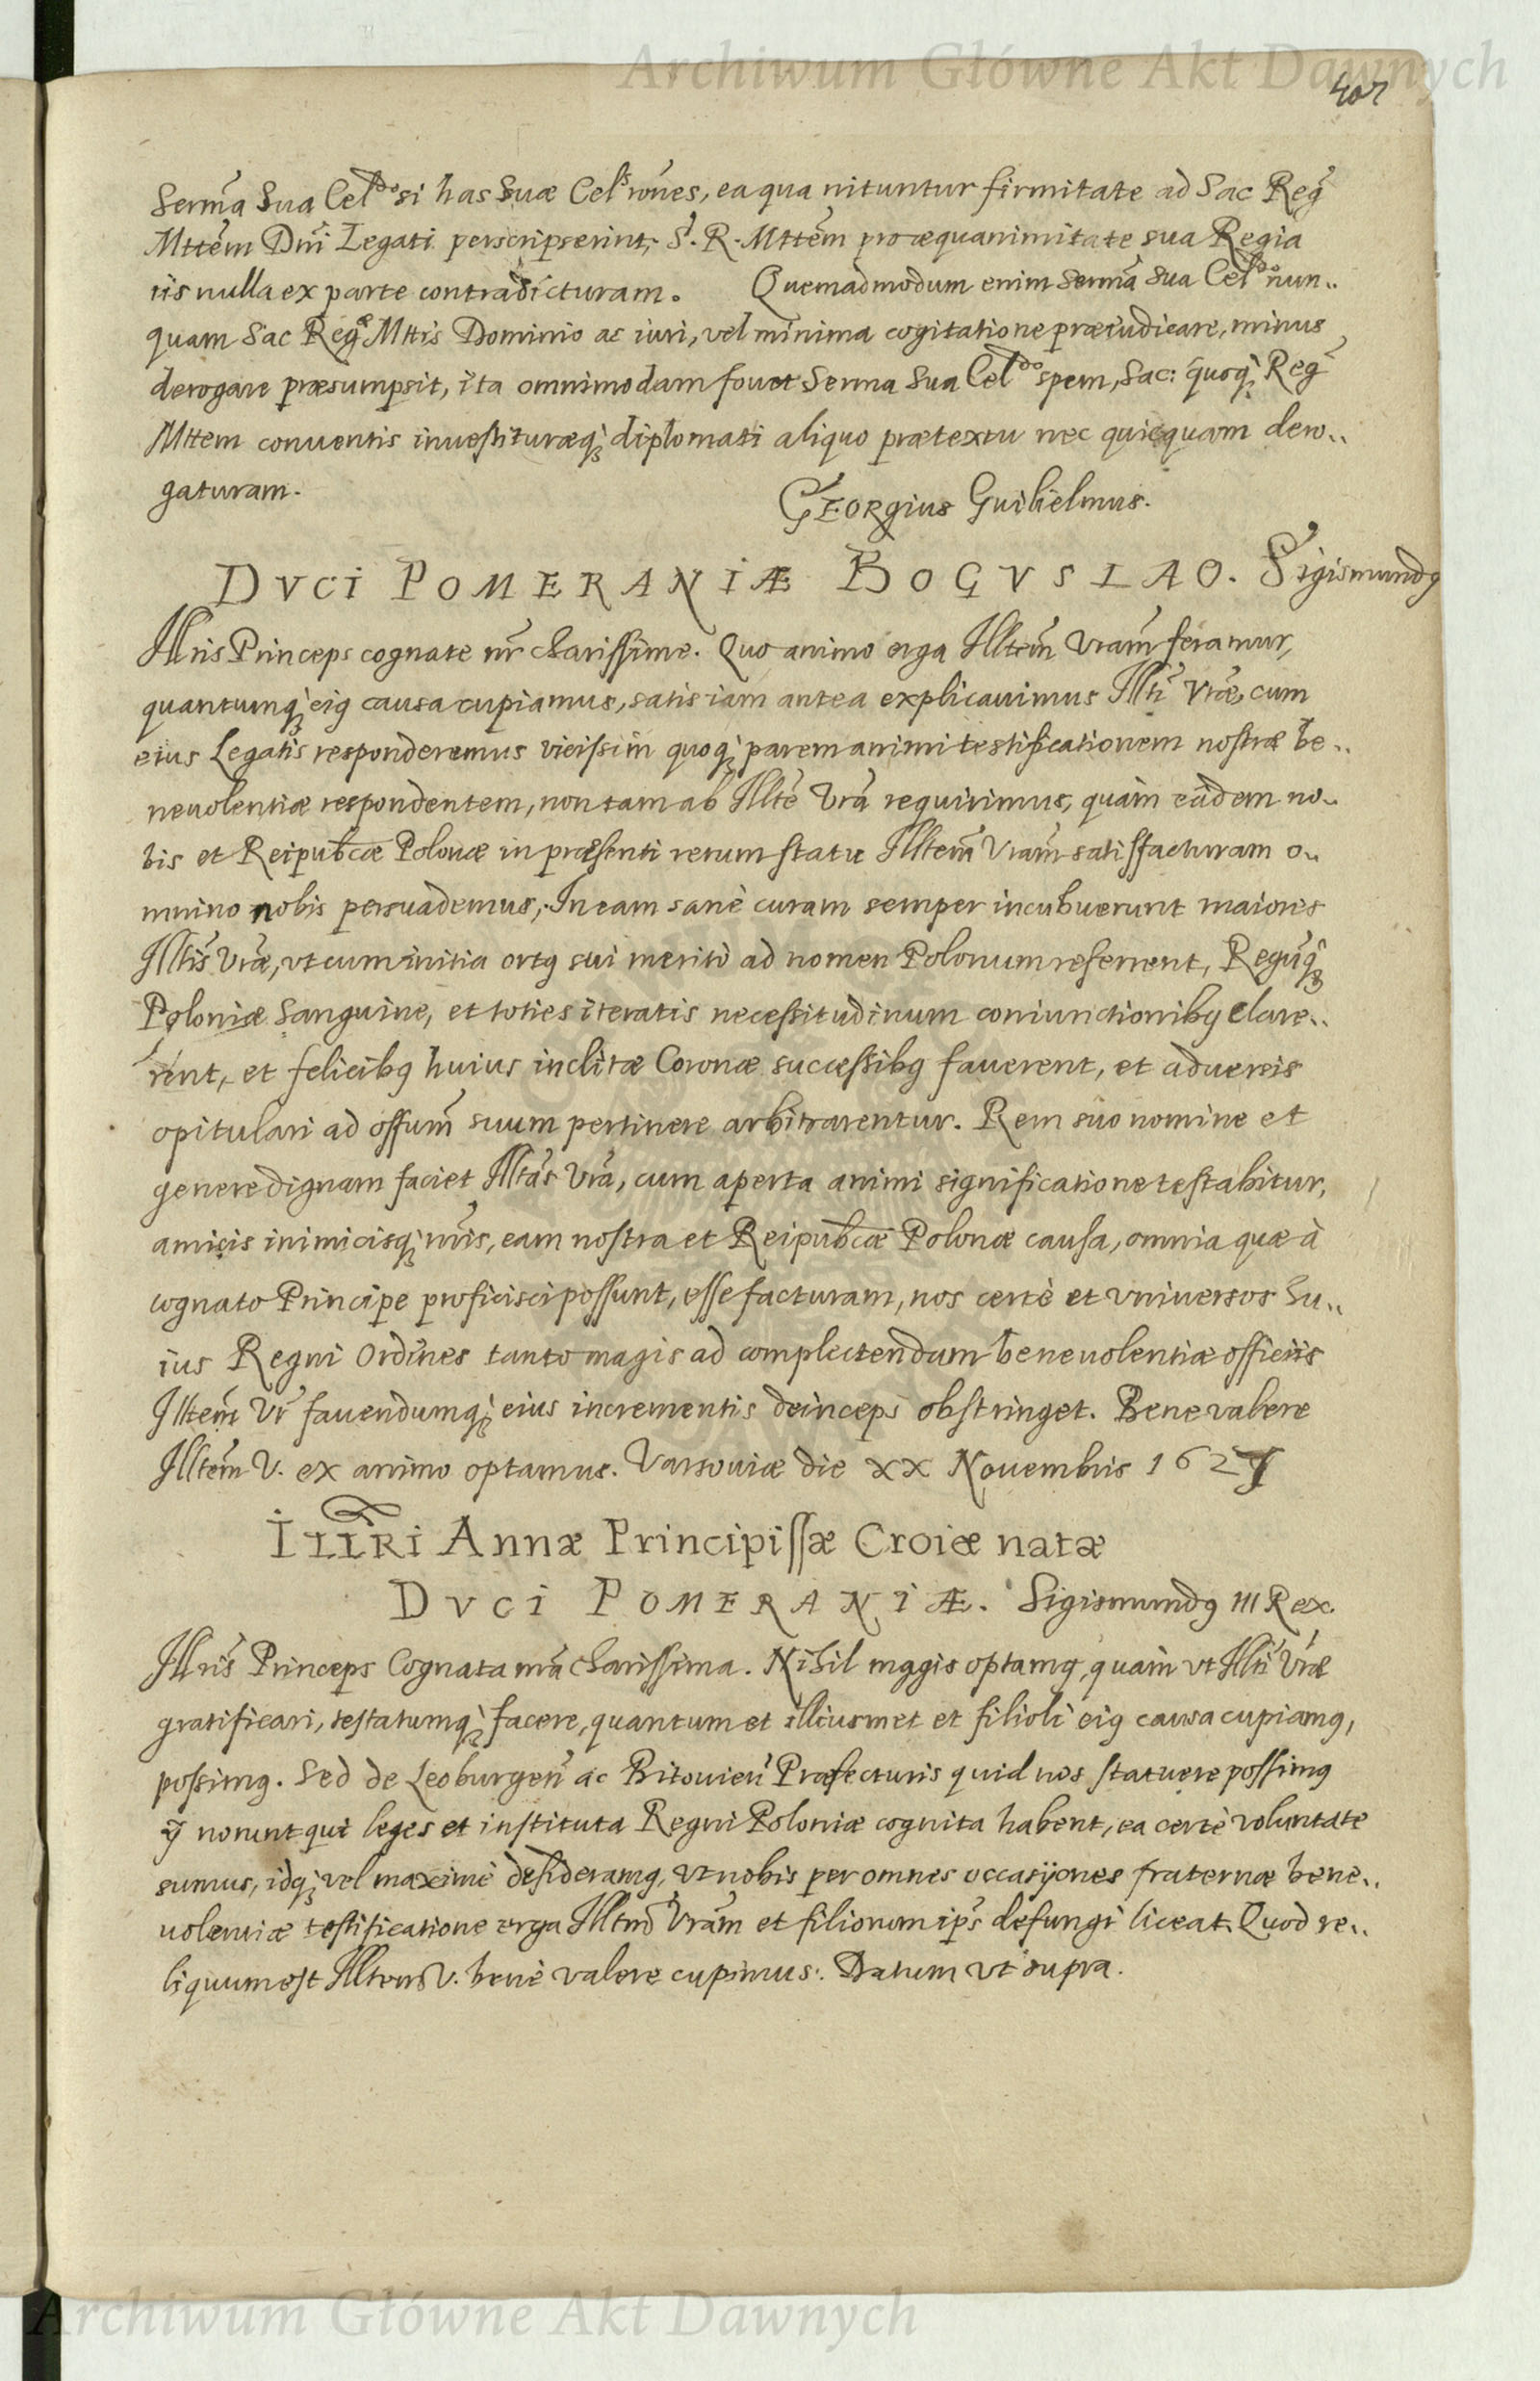 Archiwum Główne Akt Dawnych
407
Serma Sua Celdo si has suæ Cels rones, ea qua nituntur firmitate ad Sac Reg
Mttem Dni Legati perscripserint, S. R. Mttem pro æquanimitate sua Regia
iis nulla ex parte contradicturam. Quemadmodum enim serma sua Celdo nun..
quam Sac Regæ Mttis Dominio ac iuri, vel minima cogitatione præiudicare, minus
derogare præsumpsit, ita omnimodam fouet Serma Sua Celdo spem, Sac: quoqꝫ Reg
Mttem conuentis inuestituræqꝫ diplomati aliquo prætextu nec quicquam dero..
gaturam.
Georgius Guilielmus.
DVCI POMERANIÆ BOGVSLAO. Sigismundꝰ
Illris Princeps cognate nr charissime. Quo animo erga Illtem Vram feramur,
quantumqꝫ eiꝰ causa cupiamus, satis iam antea explicauimus Illti Vræ, cum
eius Legatis responderemus vicissim quoqꝫ parem animi testificationem nostræ be..
neuolentiæ respondentem, non tam ab Illte Vra requirimus, quàm eadem no..
bis et Reipublicæ Polonæ in præsenti rerum statu Illtem Vram satisfacturam o..
mnino nobis persuademus, In eam sanè curam semper incubuerunt maiores
Illtis Vræ, vt cum initia ortꝰ sui meritò ad nomen Polonum referrent, Regūqꝫ
Poloniæ Sanguine, et toties iteratis necessitudinum coniunctionibꝰ clare..
rent, et felicibꝰ huius inclitæ Coronæ successibꝰ fauerent, et aduersis
opitulari ad offum suum pertinere arbitrarentur. Rem suo nomine et
genere dignam faciet Illtas Vra, cum aperta animi significatione testabitur,
amicis inimicisqꝫ nris, eam nostra et Reipubcæ Polonæ causa, omnia quæ à
cognato Principe proficisci possunt, esse facturam, nos certè et vniuersos hu..
ius Regni Ordines tanto magis ad complectendam beneuolentiæ officiis
Illtem Vr fauendumqꝫ eius incrementis deinceps obstringet. Bene valere
Illtem V. ex animo optamus. Varsouiæ die XX Nouembris 1627
ILLRI Annæ Principissæ Croiæ natæ
DVCI POMERANIÆ. Sigismundꝰ III Rex.
Illris Princeps Cognata nra charissima. Nihil magis optamꝰ, quàm vt Illti Vræ
gratificari, testatumqꝫ facere, quantum et illiusmet et filioli eiꝰ causa cupiamꝰ,
possimꝰ. Sed de Leoburgen ac Bitouien Præfecturis quid nos statuere possimꝰ
ÿ norunt qui leges et instituta Regni Poloniæ cognita habent, ea certè voluntate
sumus, idqꝫ vel maximè desideramꝰ, vt nobis per omnes occasiones fraternæ bene..
uolentiæ testificatione erga Illtem Vram et filiorum ips defungi liceat. Quod re..
liquum est Illtem V. benè valere cupimus. Datum vt supra.
Archiwum Główne Akt Dawnych